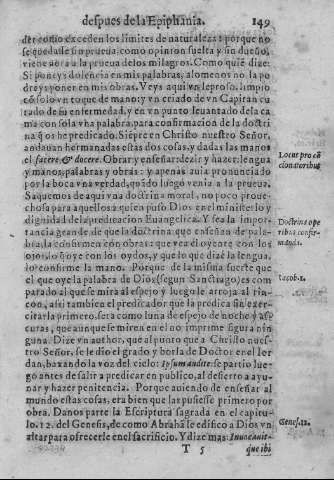 despues de la Epiphania. 149
der como exceden los limites de naturaleza: porque no
se quedasse sin prueua como opinion suelta y sin dueño,
viene aora a la prueua de los milagros. Como quiē dize:
Si poneys dolencia en mis palabras, alomenos no la po
dreys poner en mis obras. Veys aqui vn leproso, limpio
cō solo vn toque de mano: y vn criado de vn Capitan cu
rado de su enfermedad, y en vn punto leuantado de la ca
ma con sola vna palabra, para confirmacion de la doctri
na q̄ os he predicado. Siēpre en Christo nuestro Señor,
andauan hermanadas estas dos cosas, y dadas las manos
el facere, & docere. Obrar y enseñar: dezir y hazer: lengua
y manos, palabras y obras: y apenas auia pronunciado
por la boca vna verdad, quādo luego venia a la prueua.
Saquemos de aqui vna doctrina moral, no poco proue-
chosa para aquellos a quien puso Dios en el ministerio y
dignidad de la predicacion Euangelica. Y sea la impor-
tancia grande de que la doctrina que enseñan de pala-
bra, la confirmen con obras: que vea el oyente con los
ojos, lo q̄ oye con los oydos, y que lo que dize la lengua,
lo confirme la mano. Porque de la misma suerte que
el que oye la palabra de Dios (segun Sanctiago) es com
parado al que se mira al espejo y luego le arroja al rin-
con, assi tambien el predicador que la predica sin exer-
citarla primero, sera como luna de espejo de noche y a es
curas, que aunque se miren en el no imprime figura nin
guna. Dize vn author, que al punto que a Christo nues-
tro Señor, se le dio el grado y borla de Doctor en el Ior
dan, baxando la voz del cielo: Ipsum audite: se partio lue-
go antes de salir a predicar en publico, al desierto a ayu-
nar y hazer penitencia. Porque auiendo de enseñar al
mundo estas cosas, era bien que las pusiesse primero por
obra. Danos parte la Escriptura sagrada en el capitu-
lo. 12. del Genesis, de como Abrahā edifico a Dios vn
altar para ofrecerle en el sacrificio. Y dize mas:
T 5 que ibi
Locus pro cō
cionatoribus
Doctrina ope
ribus confir-
manda.
Iacob.1.
Genes.12.